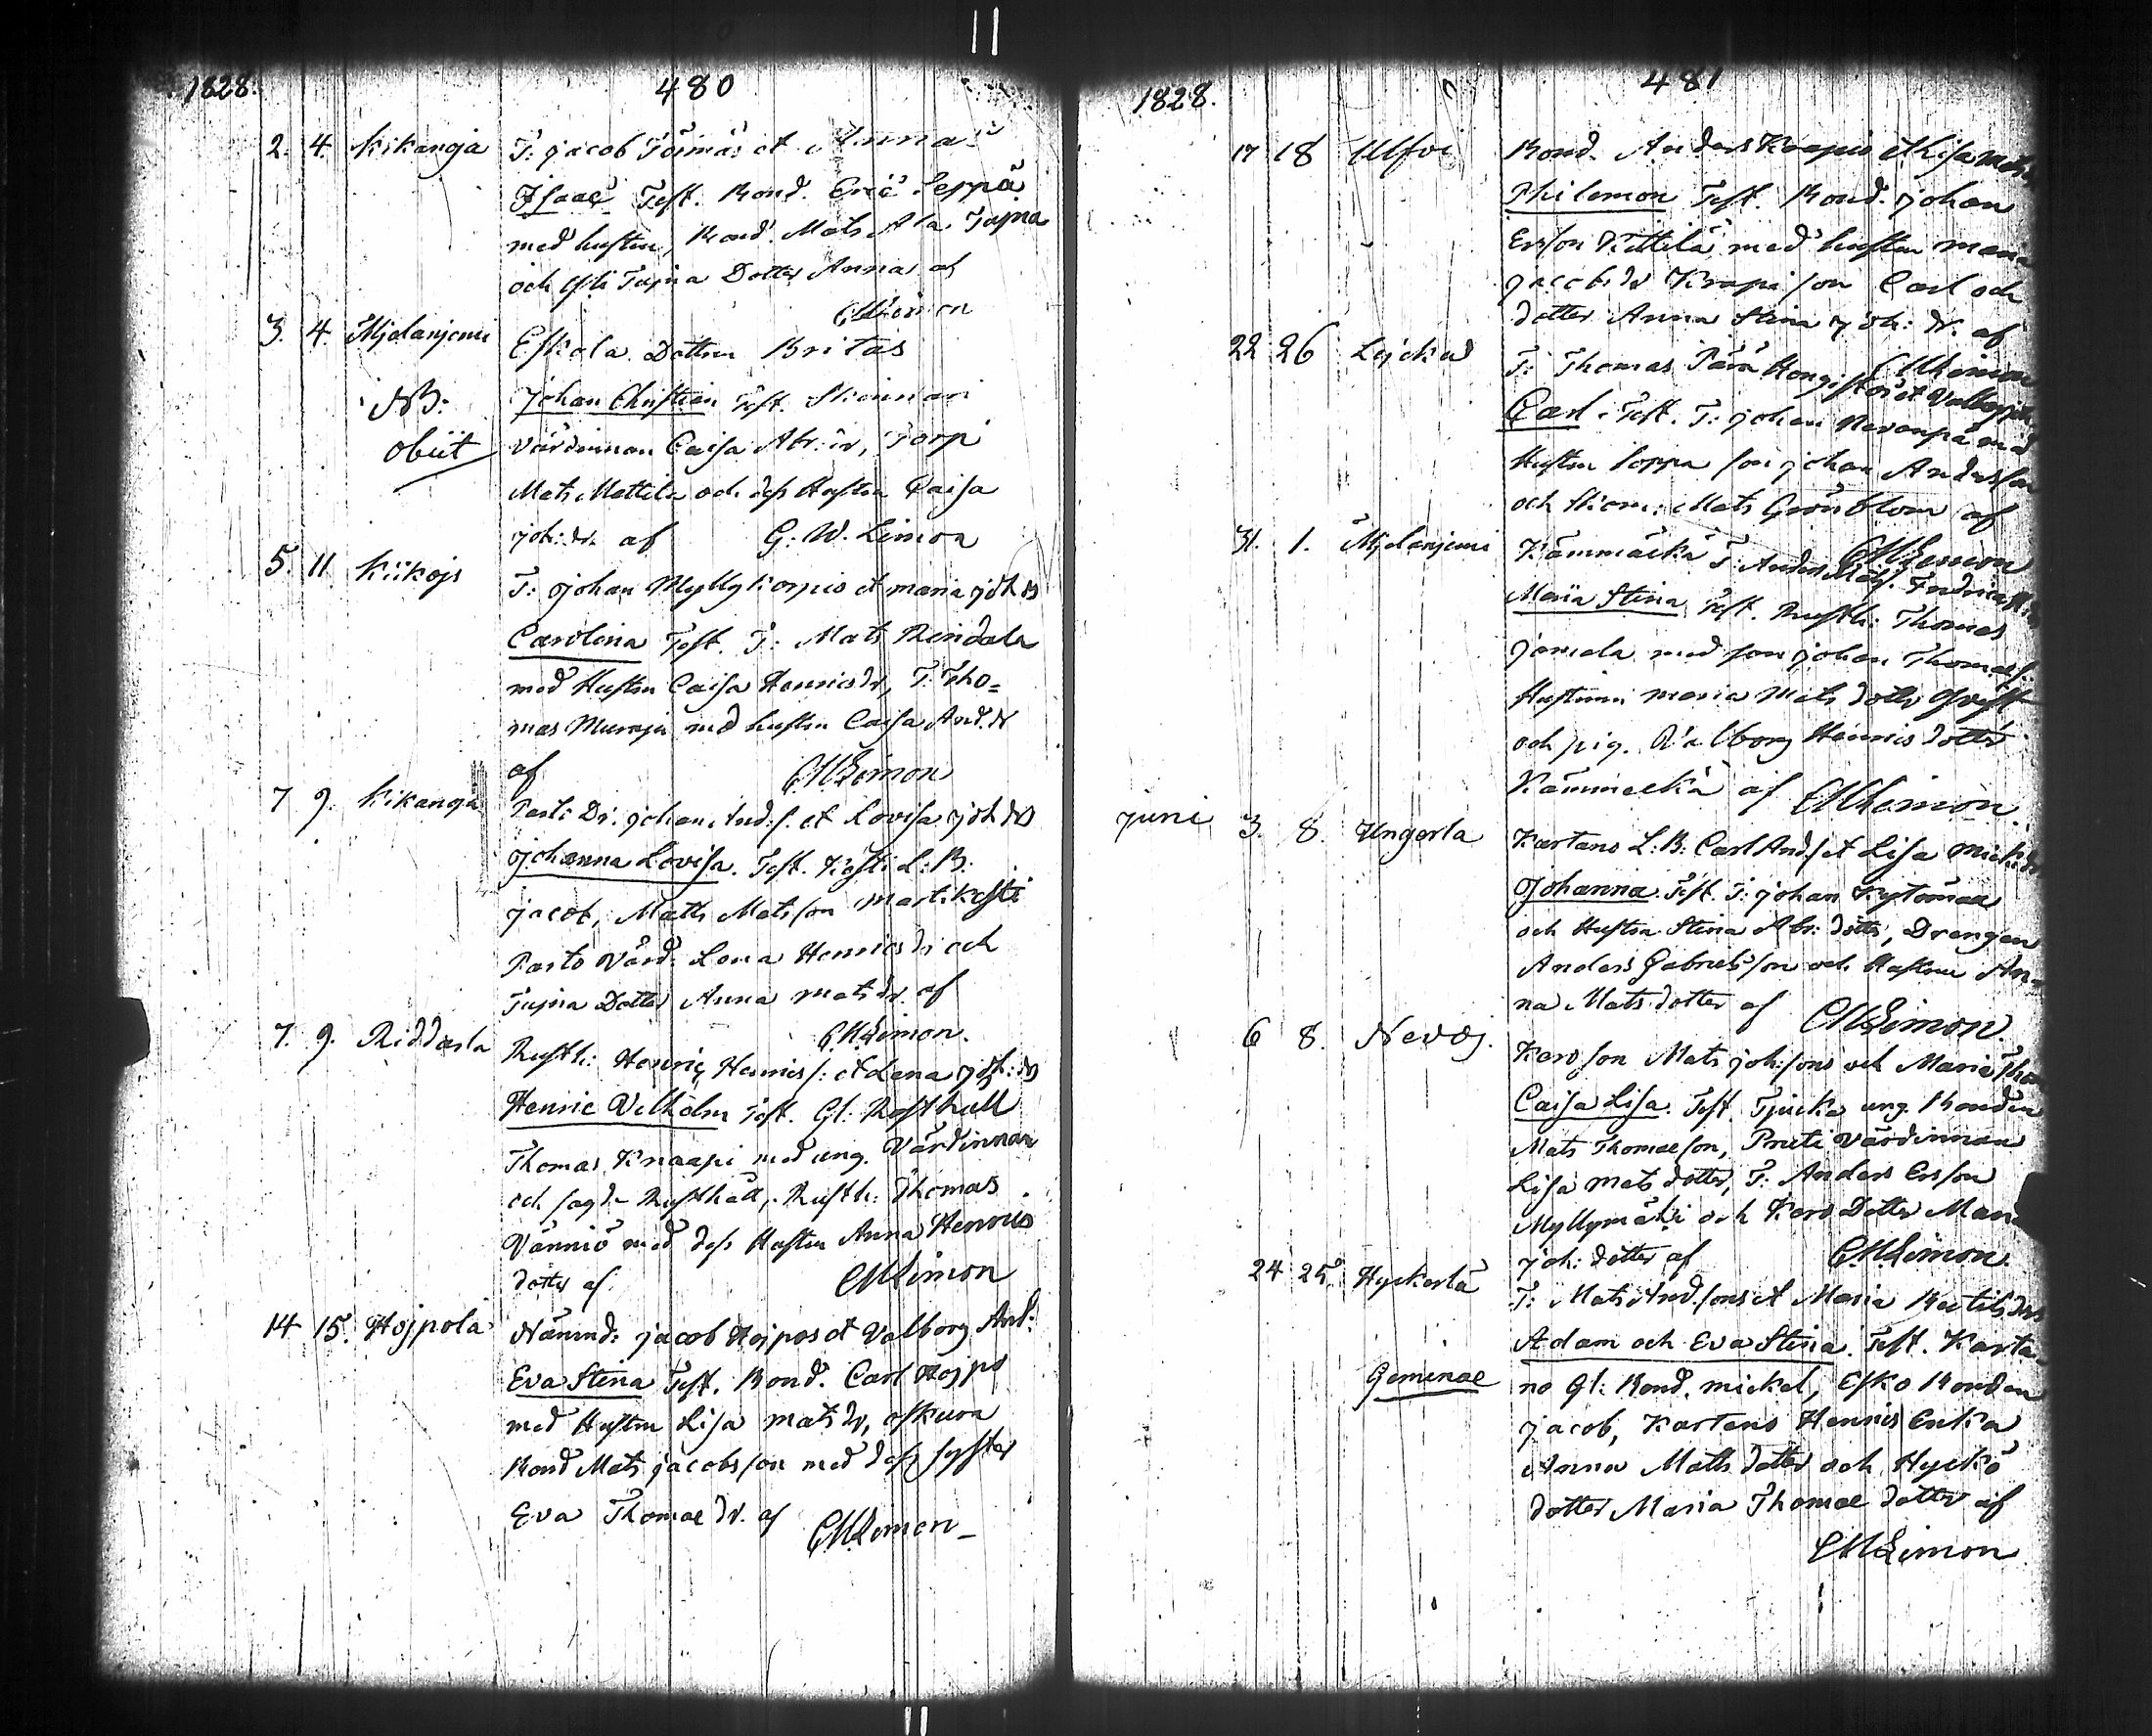 1828. 480
2. 4. Kikangä T: Jacob Töimäs et Anna
Isaac Test. Bond. Eric Leppä
med hustru, Bond. Mats Ala Tupna
och Tupna Dotter Anna af
CMLimon
3. 4. Eskola Dottern Britas
NB: Johan Christian Test. Skinnari
obiit värdinnan Caisa Abr: dr, Torp:
Mats Mattila och dess Hustru Caisa
joh: dr. af G. W. Limon
5. 11. Kiikojs T: Johan Myllykorpis et maria joh ds
Carolina Test. T: Mats Rindala
med Hustru Caisa Henrics dr, T: Tho=
mas Muraja med hustru Caisa And. dr
af CMLimon
7 9. Kikangä Dr. Johan And: s. et Lovisa joh drs
Johanna Lovisa. Test. Kesti L: B.
jacob, Matts Matsson Martikesti
Pasto Värd. Lena Henrics dr och
Tupna Dotter Anna mats dr. af
CMLimon.
7. 9. Riddarla Rusth: Henric Henrics s: et Lena joh: ds
Henric Velhelm Test. Gl: Rusthåll
Thomas Knaapi med ung. Värdinnan
och sagde Rusthåll, Rusth: Thomas
Vänniö med dess Hustru Anna Henrics
dotter af CMLimon
14 15. Hojpola Nämnd: Jacob Hojpos et Valborg And:
Eva Stina Test. Bond. Carl Hojpo
med Hustru Lisa mats dr,
Bond Mats Jacobsson med dess syster
Eva Thomae dr. af CMLimon
1828. 481
17 18 Ulfvi Bond. Anders Knapis et Lisa
Philemon Test. Bond. Johan
Ersson Kittilä med hustru maria
jacobs dr Knapi son Carl och
dotter Anna Stina joh: dr. af
CMLimon
22 26 T: Thomas Pärä Hongistos et Valborg
Carl. Test. T: Johan Nevanpä med
Hustru Soppa son johan Andersson
och Skom: Mats Grönblom af
CMLimon
31. 1. Kämmäckä T: Anders
Maria Stina Test. Rusth: Thomas
med son johan Thomas s:
Hustrun maria Mats dotter
och pig. Valborg Henrics dotter
Kämmäckä af CMLimon.
Juni 3. 8. Ungarla Kartano L: B: Carl And s et Lisa Mich: dr
Johanna. Test. T: johan Kytömaa
och Hustru Stina Abr: dotter, Drengen
Anders Gabrielsson och Hustru An-
na Mats dotter af CMLimon.
6 8. Nevoj. Kero son Mats joh: sons och Maria Tho
Caisa Lisa. Test. Tjucka ung. Bonden
Mats Thomaeson, Värdinnan
Lisa mats dotter, T: Anders Ersson
Myllymäki och Kero Dotter
joh: dotter af CMLimon.
24 25. Hyckerlä T: Mats And. sons et Maria Bertils drs
Adam och Eva Stina. Test. Karta-
Geminae no Gl: Bond. mickel, Esko Bonden
jacob, Kartano Henrics Enka
Anna Matts dotter och Hyckö
dotter Maria Thomae dotter af
CMLimon